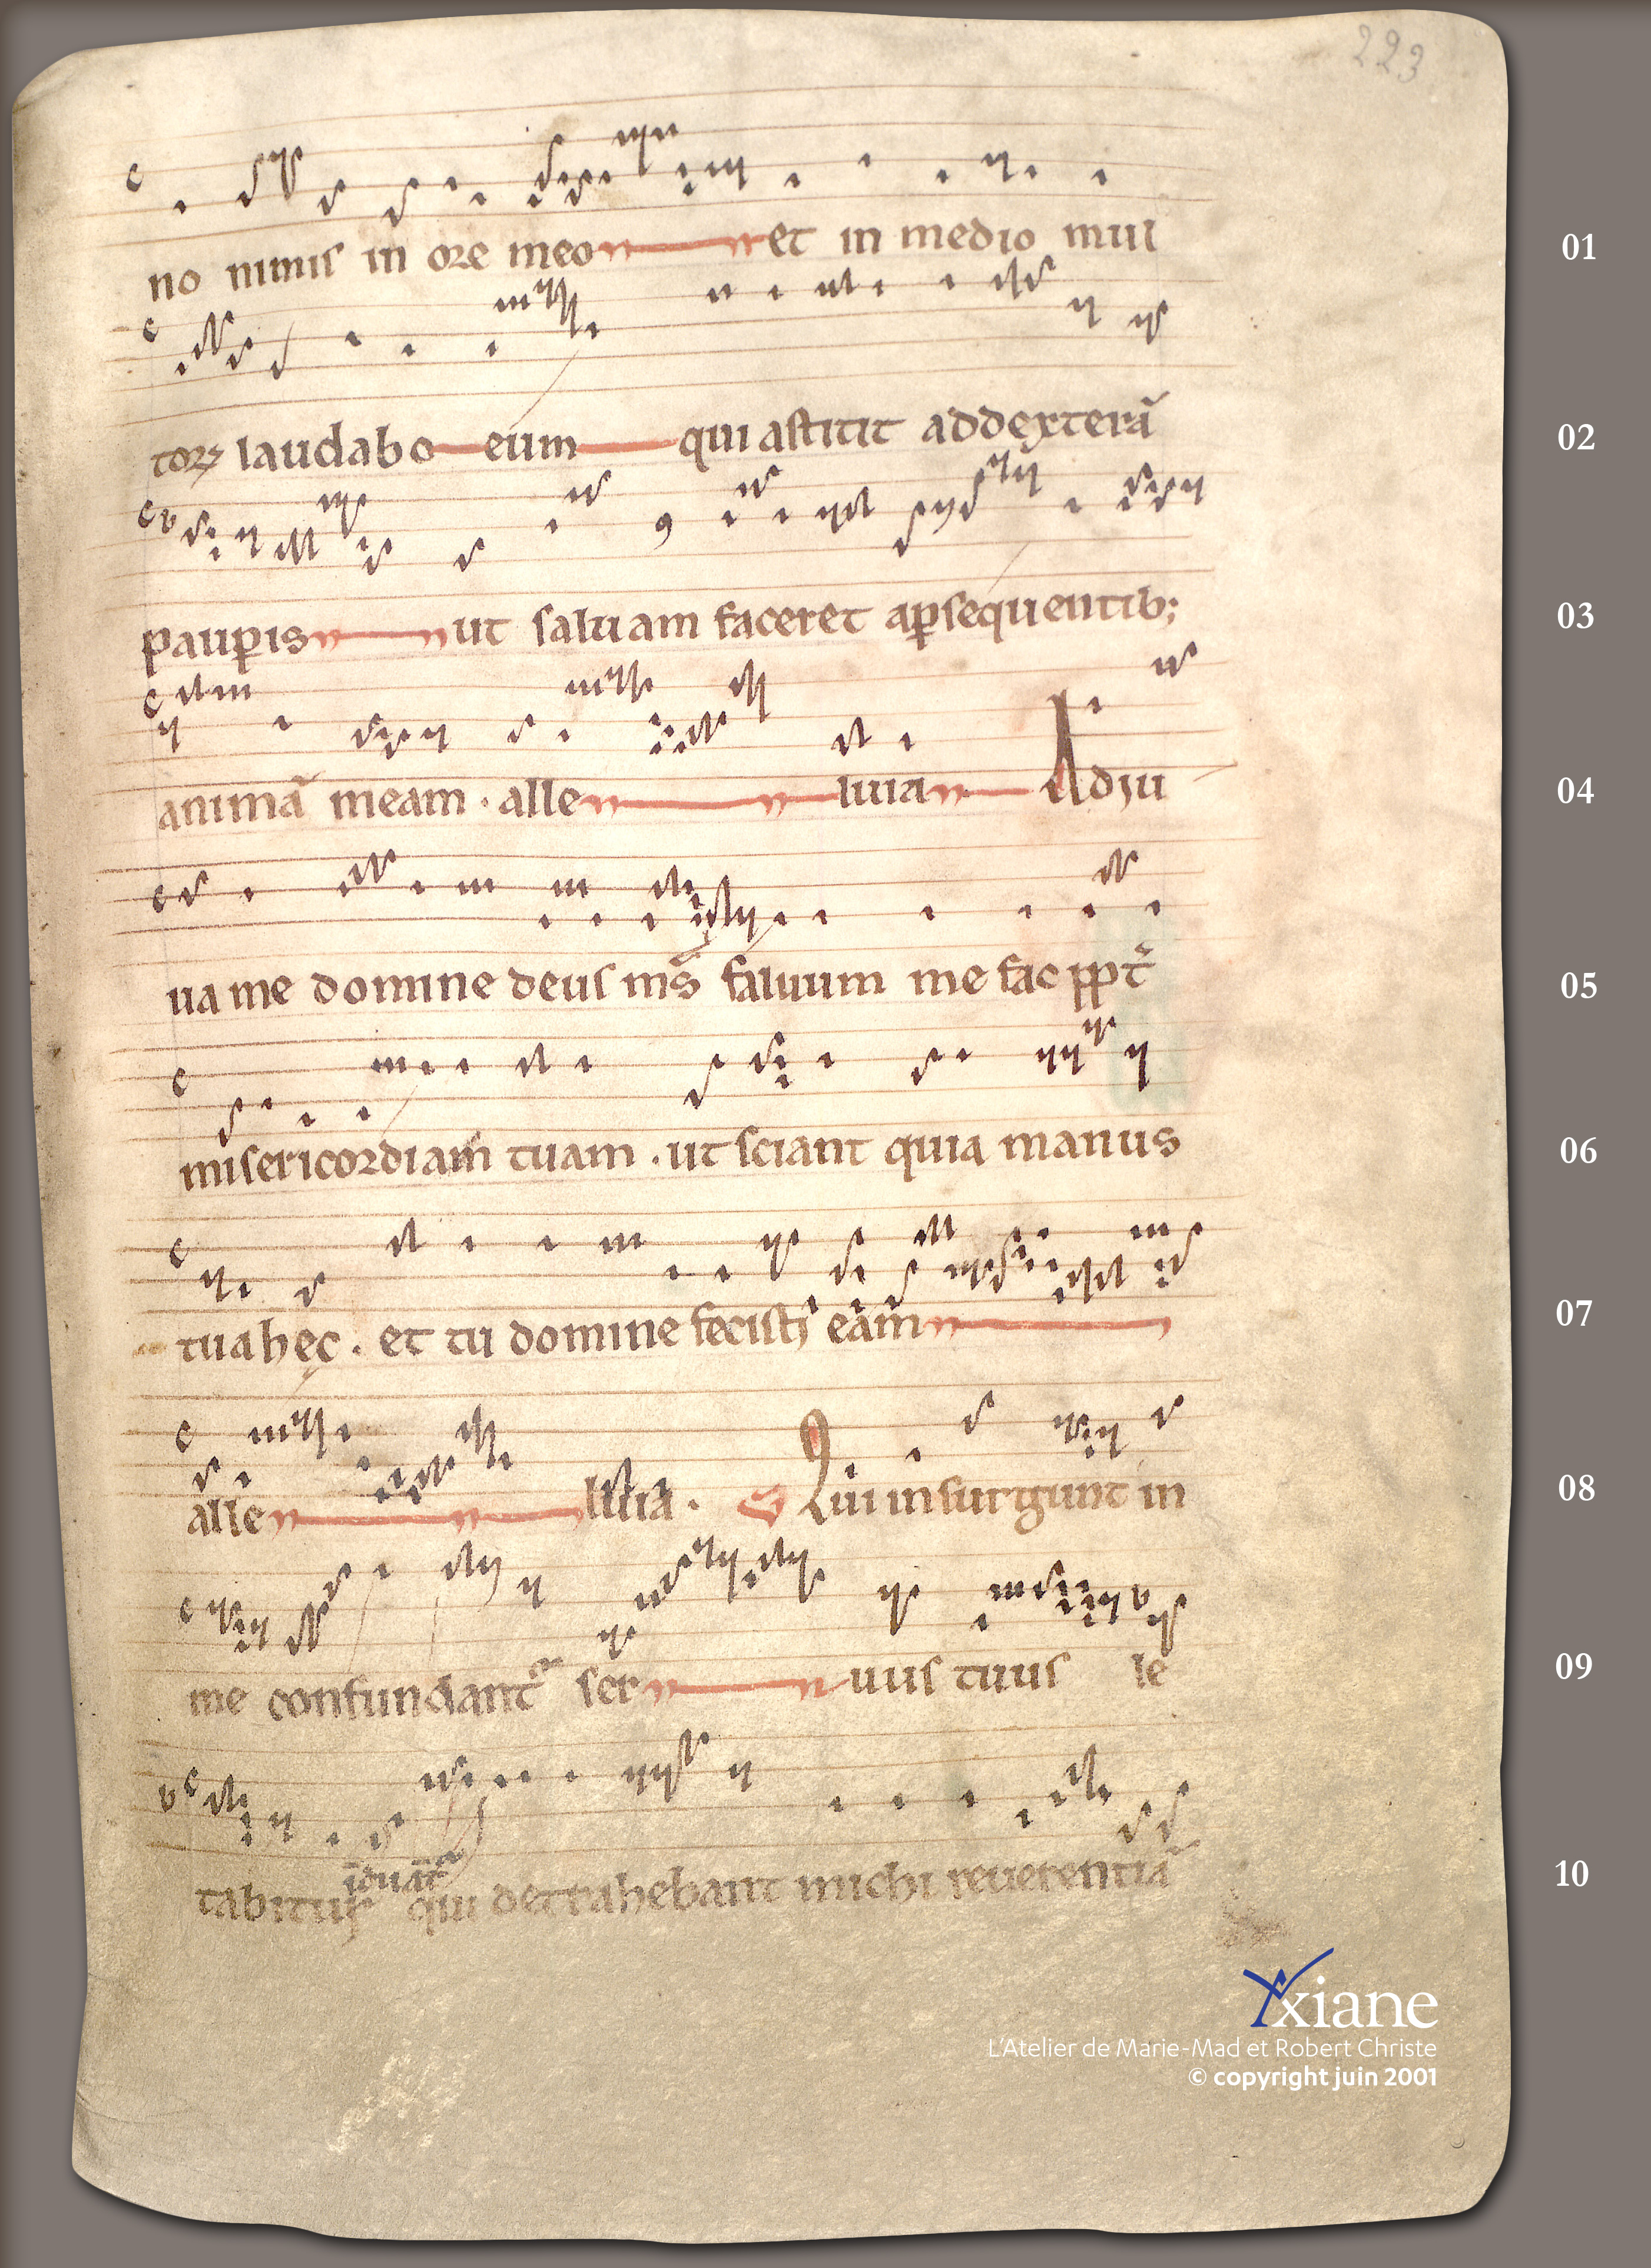 223
no nimis in ore meo et in medio mul 01
torꝝ laudabo eum qui astitit addexterā 02
paup̲is ut saluam faceret ap̲sequentib; 03
animā meam . alle luia Adiu 04
ua me domine deus ms̄ saluum me fac ppt̄ 05
misericordiam tuam . ut sciant quia manus 06
tua hęc . et tu domine fecisti eam 07
alle luia . Qui insurgunt in 08
me confundant ser uus tuus le 09
induant
tabitur qui detrahebant michi reuerentiā 10
Yxiane
L'Atelier de Marie-Mad et Robert Christe
© copyright juin 2001